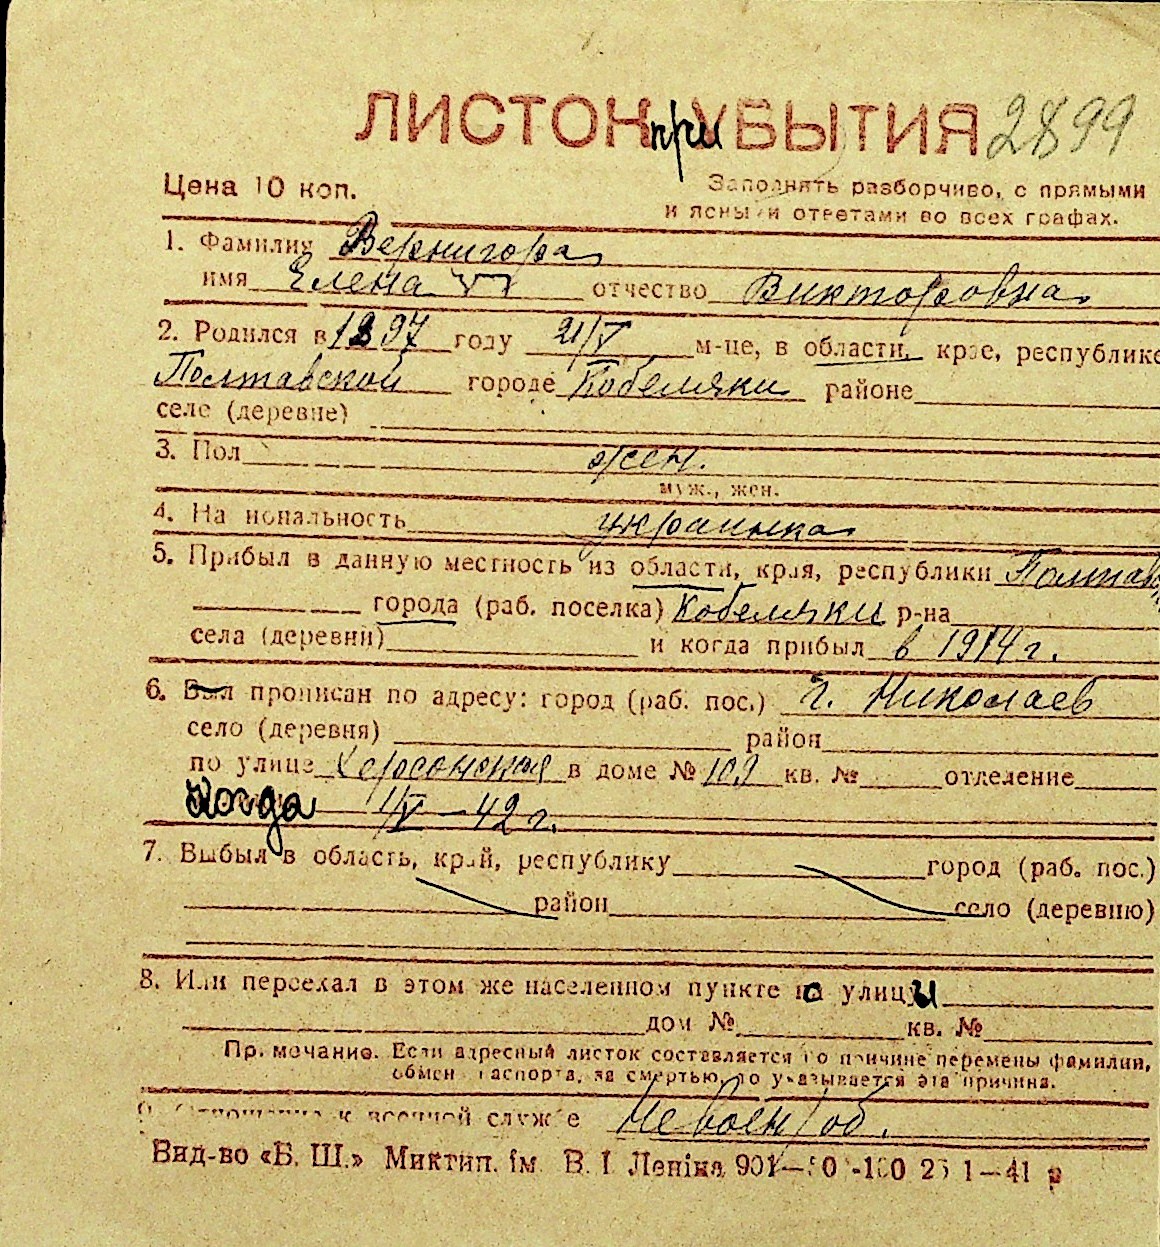 ЛИСТОК при УБЫТИЯ 2899
Цена 10 коп.
Заполнять разборчиво, с прямыми
и ясными ответами во всех графах.
1. Фамилия Вернигора
имя Елена отчество Викторовна
2. Родился в 1897 году 21/V м-це, в области, крае, республике
Полтавской городе Кобеляки районе
селе (деревне)
3. Пол жен.
муж., жен.
4. Национальность украинка
5. Прибыл в данную местность из области, края, республики Полтавск
города (раб. поселка) Кобеляки р-на
села (деревни) и когда прибыл в 1914 г.
6. Был прописан по адресу: город (раб. пос.) г. Николаев
село (деревня) район
по улице Херсонская в доме № 109 кв. № отделение
Когда 1/V - 42 г.
7. Выбыл в область, край, республику город (раб. пос.)
район село (деревню)
8. Или переехал в этом же населенном пункте на улицу и
дом № кв. №
Примечание. Если адресный листок составляется по причине перемены фамилии,
обмен паспорта, за смертью, то указывается эта причина.
9. Отношение к военной службе Не военноб.
Вид-во «Б. Ш.» Миктип. ім. В. І. Леніна 1—41 р